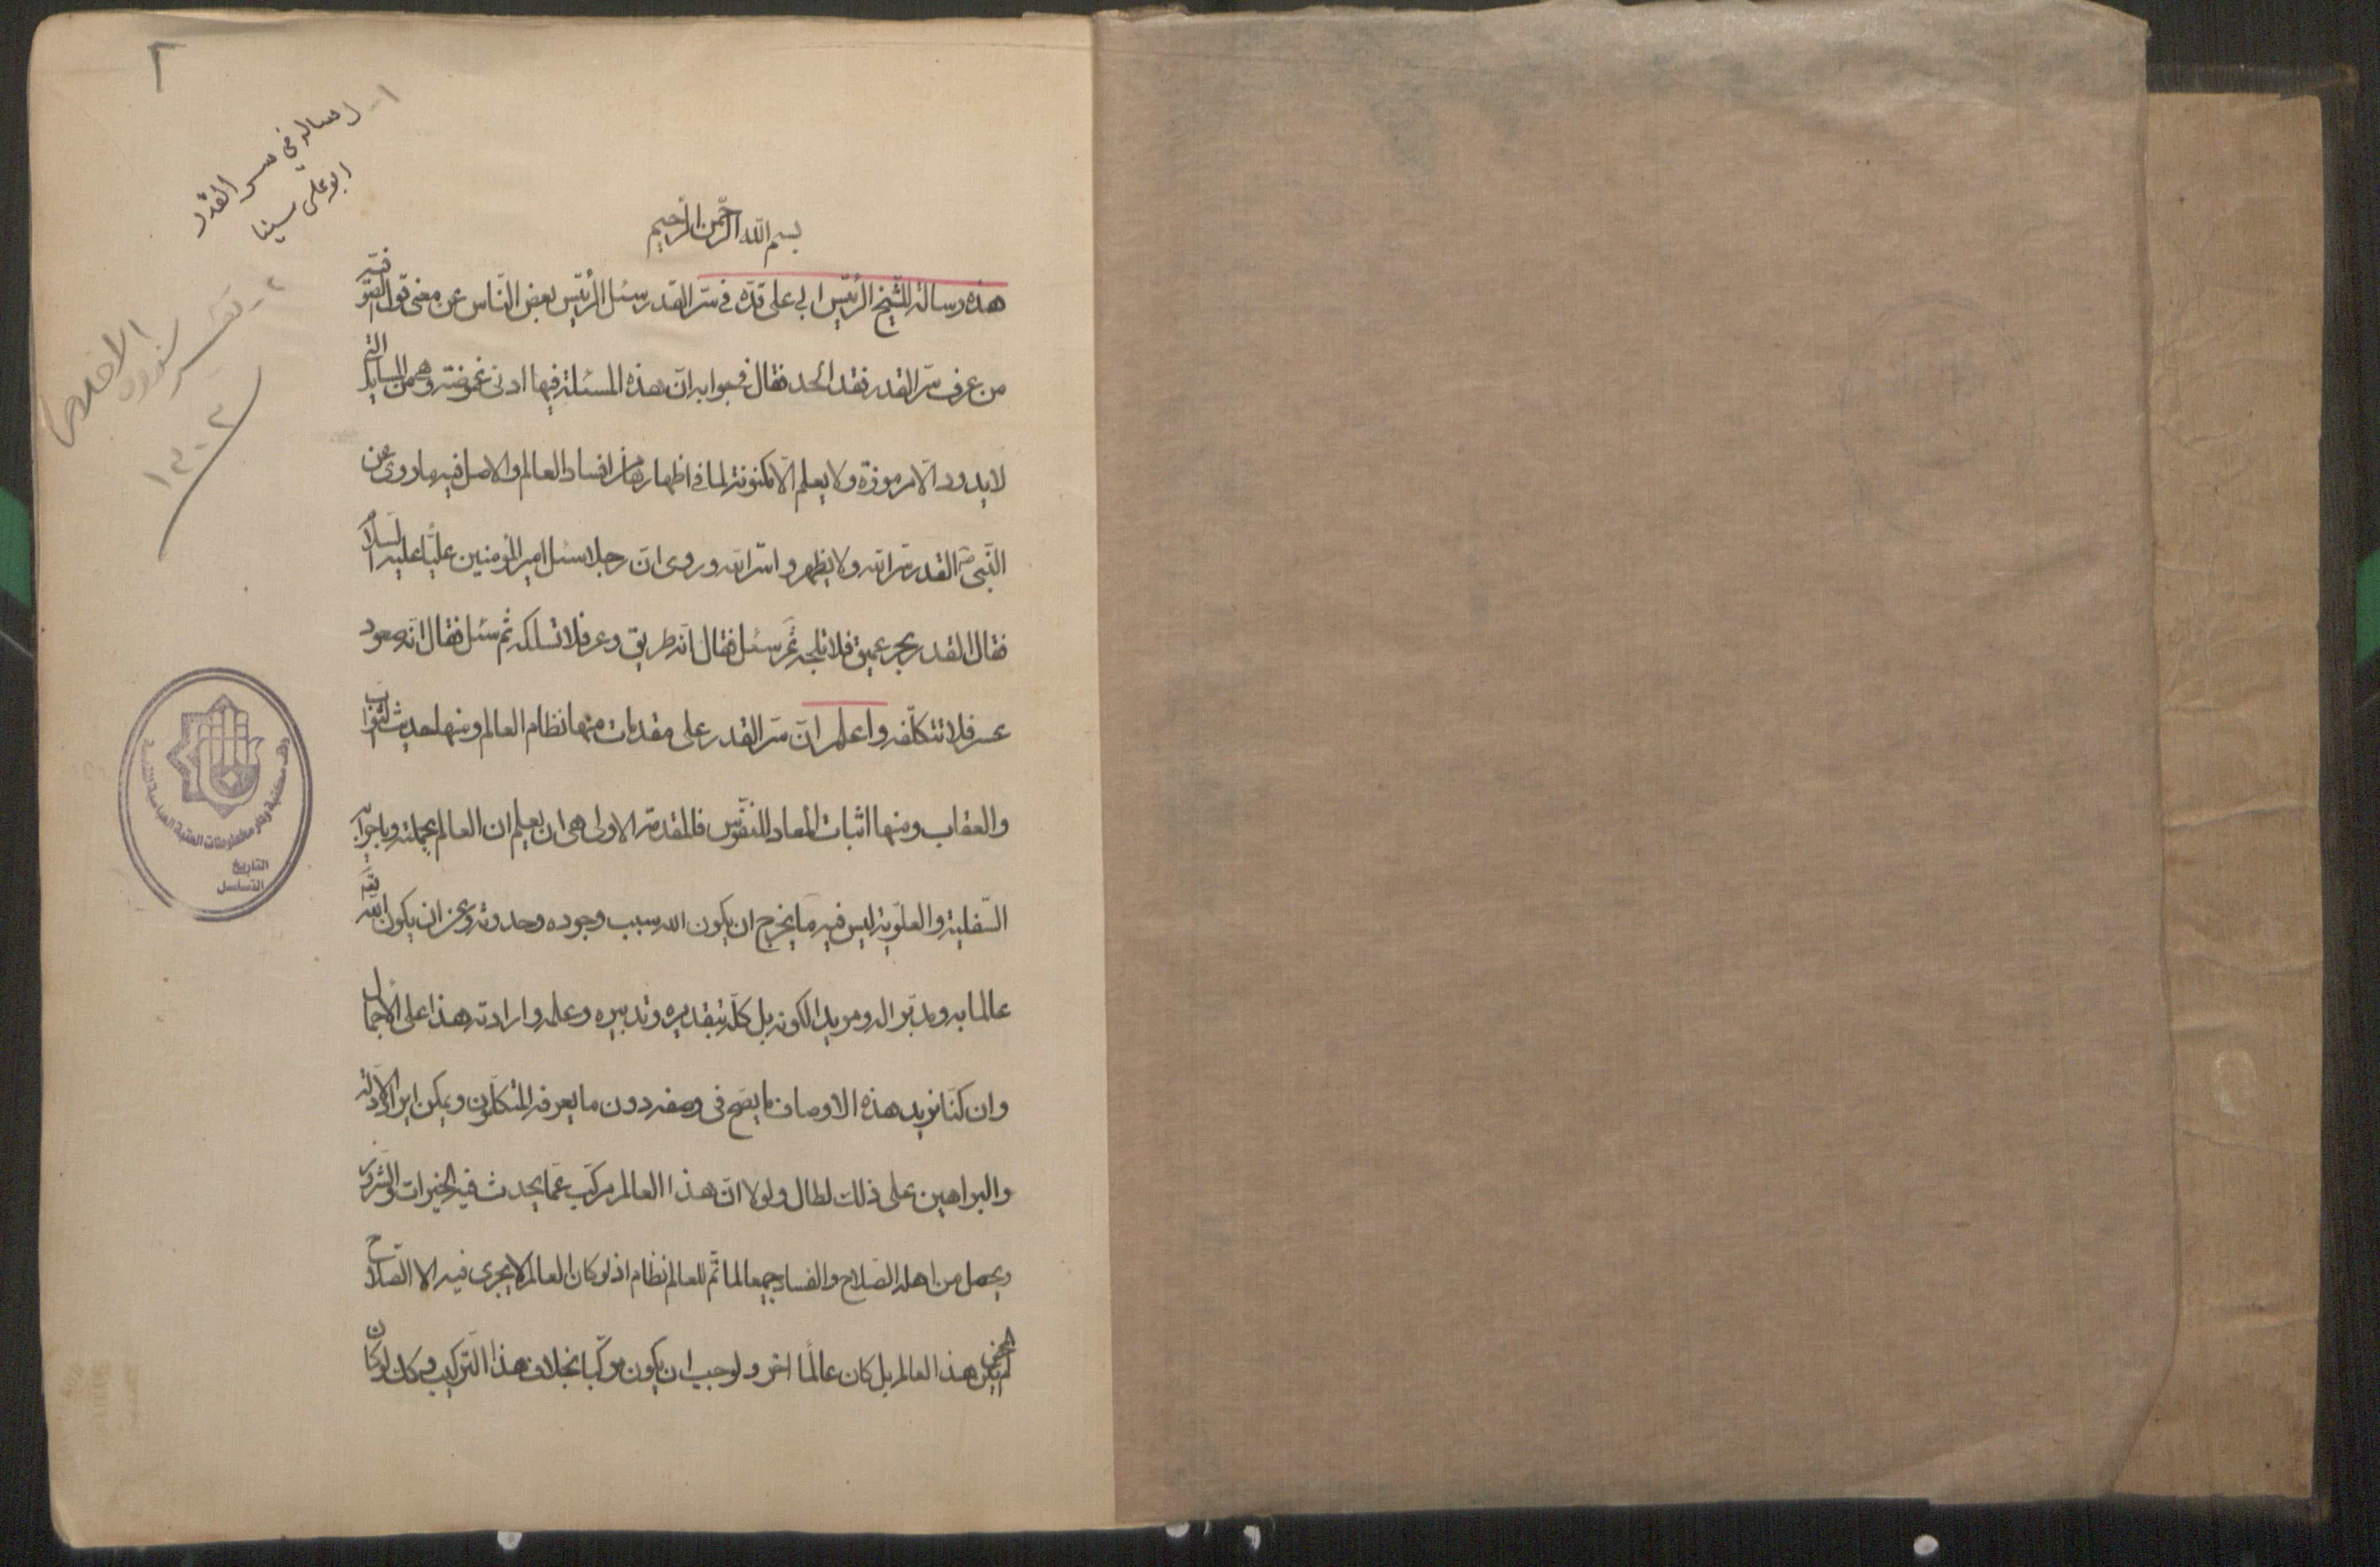 ٢
١- رساله في سر القدر
ابو على سينا
٢- تفسير سورة الاخلاص
١٣٠٢
بسم الله الرحمن الرحيم
هذه رسالة للشيخ الرئيس ابي على قدّه في سّر القدر سئل الرئيس بعض النّاس عن معنى قول الصّوفيّه
من عرف سّر القدر فقد الحد فقال في جوابه انّ هذه المسئلة فيها ادنى غموضة وهى من المسايل التى
لا يدوّد الّا مرموزة ولا يعلم الّا مكنونة لما في اظهارها من افساد العالم والاصل فيه ما روى عن
النّبى ص القدر سّر الله ولا يظهروا سّر الله وروى انّ رجلا سئل امير المؤمنين عليّا عليه السّلام
فقال القدر بحر عميق فلا تلجه ثمّ سئل فقال انّه طريق وعر فلا تسلكه ثم سئل فقال انّه صعود
عسر فلا تتكلّفه واعلم انّ سّر القدر على مقدمات منها نظام العالم ومنها حديث الثّواب
والعقاب ومنها اثبات المعاد للنّفوس فالمقدمة الاولى هى ان يعلم ان العالم بجملته وباجزائه
السّفلية والعلّوية ليس فيه ما يخرج ان يكون الله سبب وجوده وحدوثه وعن ان يكون الله
عالما به ومدبّرا له ومريدا لكونه بل كلّه بتقديره وتدبيره وعلمه وارادته هذا على الاجمال
وان كنّا نريد هذه الاوصاف ما يصّح فى وصفه دون ما يعرفه المتكلّمون ويمكن ايراد الادلّة
والبراهين على ذلك لطال ولولا انّ هذا العالم مركّب عمّا يحدث فيه الخيرات والشّرور
ويحصل من اهله الصّلاح والفساد جميعا لما تّم للعالم نظام اذ لو كان العالم لا يجرى فيه الا الصّلاح
المحض
لم يكن هذا العالم بل كان عالمًا اخر ولوجب ان يكون مركّبا بخلاف هذا التّركيب وكك لو كان
وقف مكتبة ودار مخطوطات العتبة العباسية المقدسة
التاريخ
التسلسل